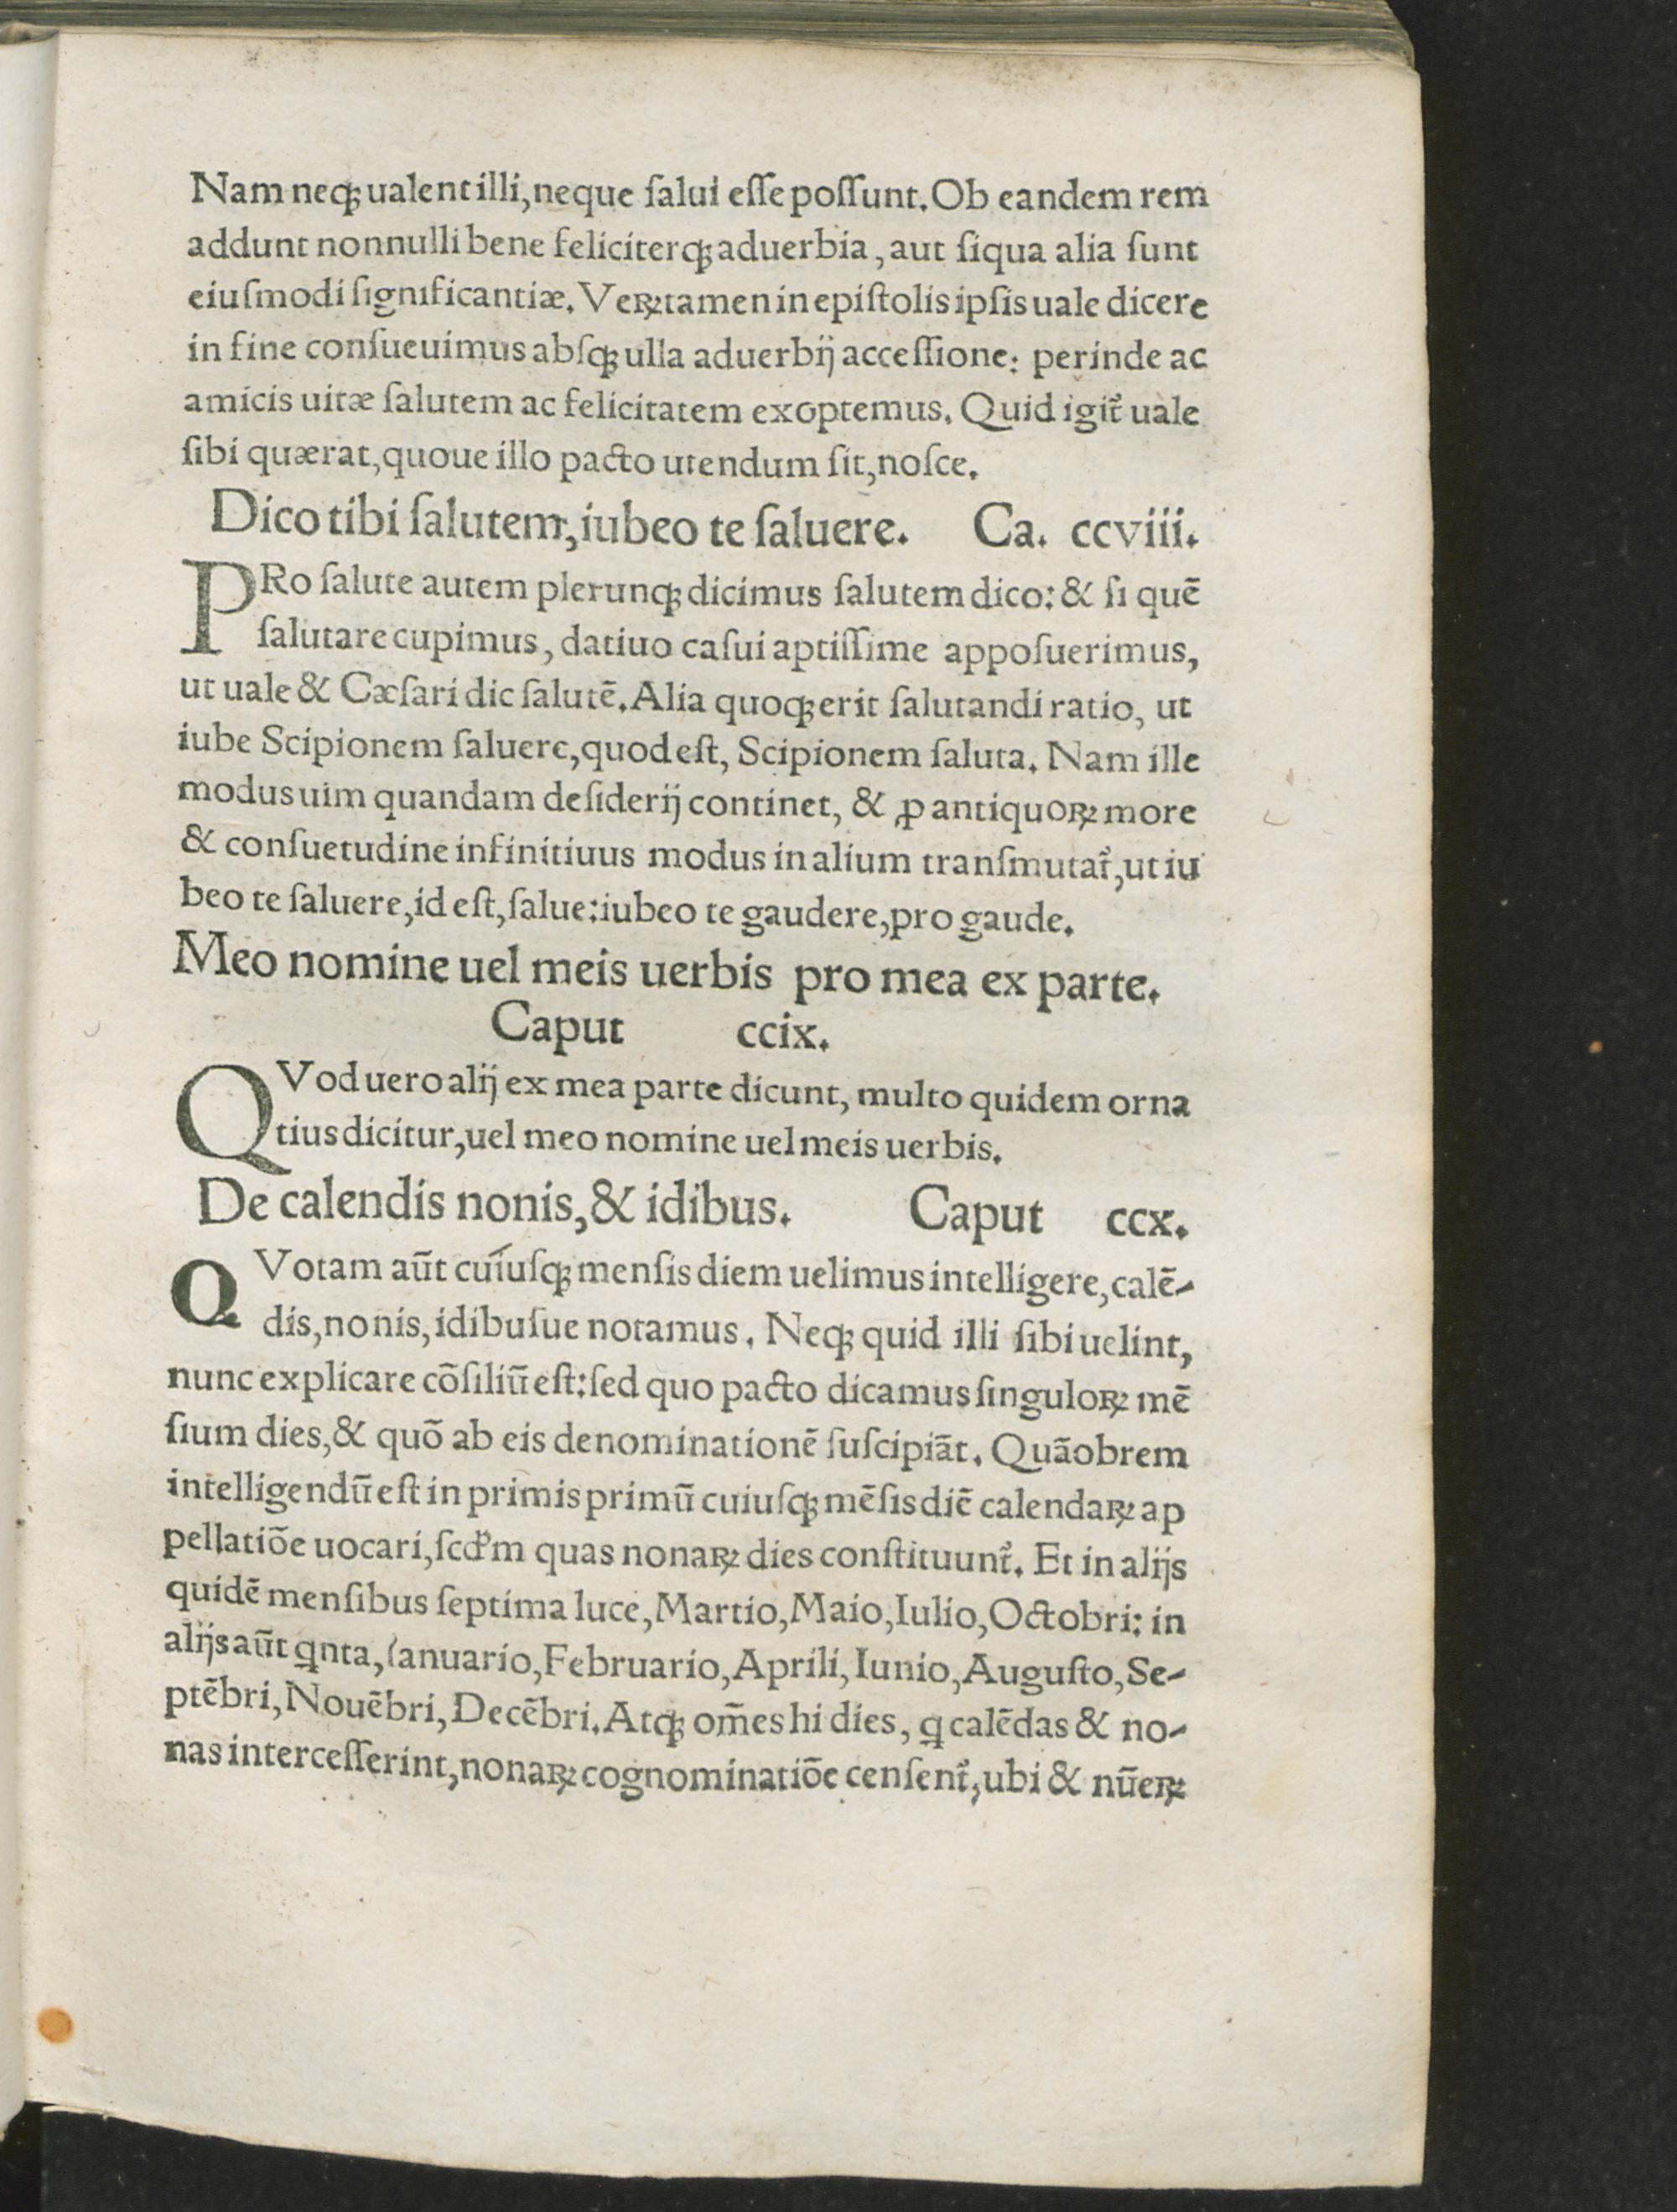 Nam neqꝫ ualent illi, neque ſalui eſſe poſſunt. Ob eandem rem
addunt nonnulli bene feliciterqꝫ aduerbia, aut ſiqua alia ſunt
eiuſmodi ſignificantiæ. Veꝝtamen in epiſtolis ipſis uale dicere
in fine conſueuimus abſqꝫ ulla aduerbij acceſſione: perinde ac
amicis uitæ ſalutem ac felicitatem exoptemus. Quid igit̉ uale
ſibi quærat, quoue illo pacto utendum ſit, noſce.
Dico tibi ſalutem, iubeo te ſaluere. Ca. ccviii.
PRo ſalute autem plerunqꝫ dicimus ſalutem dico: & ſi quē
ſalutare cupimus, datiuo caſui aptiſſime appoſuerimus,
ut uale & Cæſari dic ſalutē. Alia quoqꝫ erit ſalutandi ratio, ut
iube Scipionem ſaluere, quod eſt, Scipionem ſaluta. Nam ille
modus uim quandam deſiderij continet, & ꝓ antiquoꝝ more
& conſuetudine infinitiuus modus in alium tranſmutat̉, ut iu
beo te ſaluere, id eſt, ſalue: iubeo te gaudere, pro gaude.
Meo nomine uel meis uerbis pro mea ex parte.
Caput ccix.
QVod uero alij ex mea parte dicunt, multo quidem orna
tius dicitur, uel meo nomine uel meis uerbis.
De calendis nonis, & idibus. Caput ccx.
QVotam aūt cuiuſqꝫ menſis diem uelimus intelligere, calē-
dis, nonis, idibuſue notamus. Neqꝫ quid illi ſibi uelint,
nunc explicare cōſiliū eſt: ſed quo pacto dicamus ſinguloꝝ mē
ſium dies, & quō ab eis denominationē ſuſcipiāt. Quāobrem
intelligendū eſt in primis primū cuiuſqꝫ mēſis diē calendaꝝ ap
pellatiōe uocari, ſcd̉m quas nonaꝝ dies conſtituunt̉. Et in alijs
quidē menſibus ſeptima luce, Martio, Maio, Iulio, Octobri: in
alijs aūt qͥnta, Ianuario, Februario, Aprili, Iunio, Auguſto, Se-
ptēbri, Nouēbri, Decēbri. Atqꝫ om̄es hi dies, qͥ calēdas & no-
nas interceſſerint, nonaꝝ cognominatiōe cenſent̉, ubi & nūeꝝ